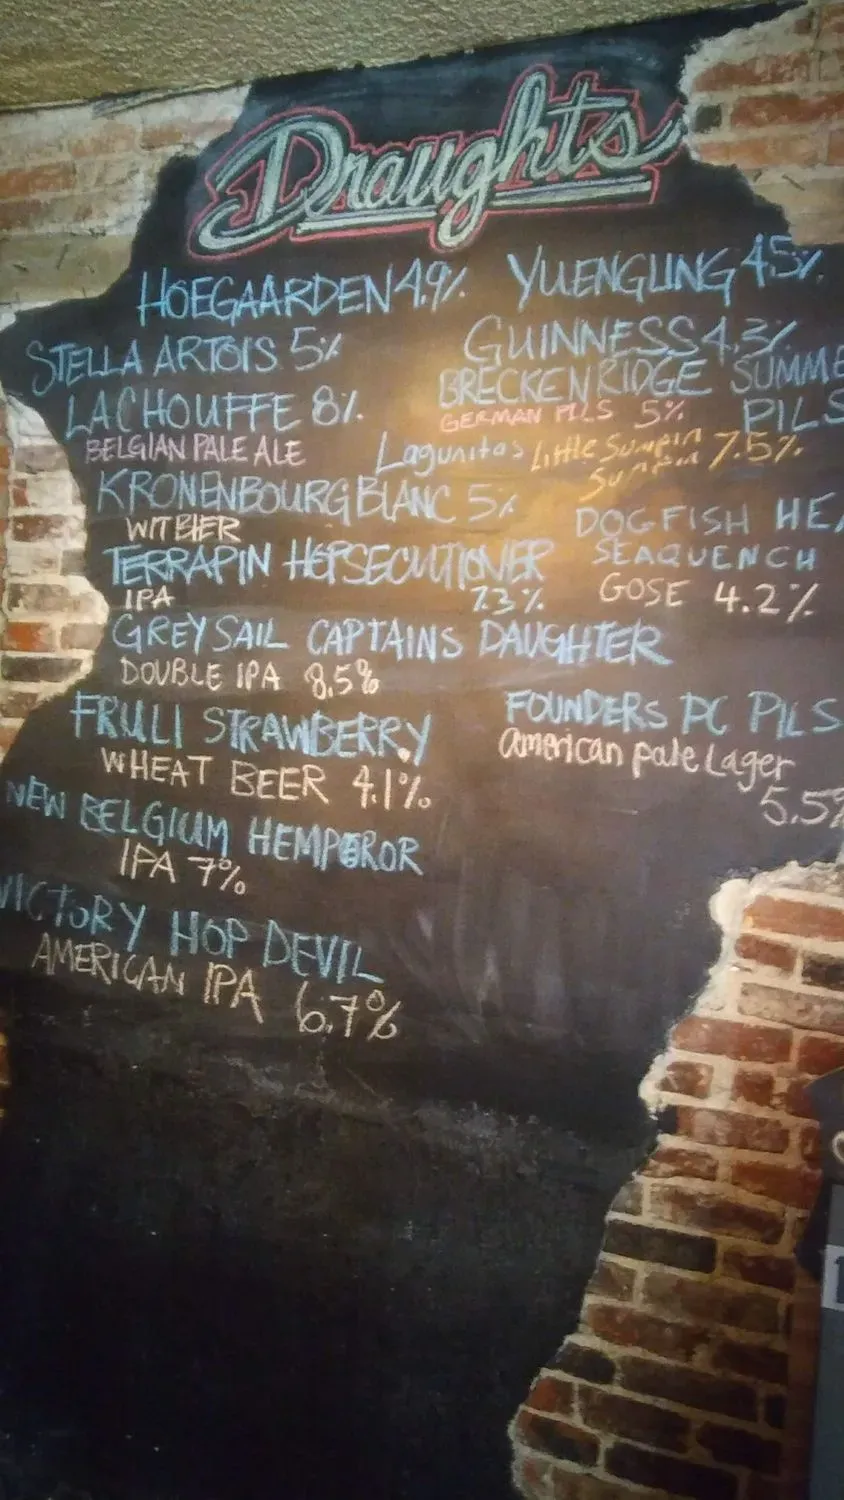 Draughts
HOEGAARDEN 4.9%
STELLA ARTOIS 5%
LA CHOUFFE 8%
BELGIAN PALE ALE
KRONENBOURG BLANC 5%
WITBIER
TERRAPIN HOPSECUTIONER
IPA 7.3%
GREY SAIL CAPTAINS DAUGHTER
DOUBLE IPA 8.5%
FRULI STRAWBERRY
WHEAT BEER 4.1%
NEW BELGIUM HEMPEROR
IPA 7%
VICTORY HOP DEVIL
AMERICAN IPA 6.7%
YUENGLING 4.5%
GUINNESS 4.3%
BRECKENRIDGE SUMME
PILS
GERMAN PILS 5%
Lagunitas Little Sumpin 7.5%
Sumpin
DOGFISH HEA
SEAQUENCH
GOSE 4.2%
FOUNDERS PC PILS
american pale Lager
5.5%